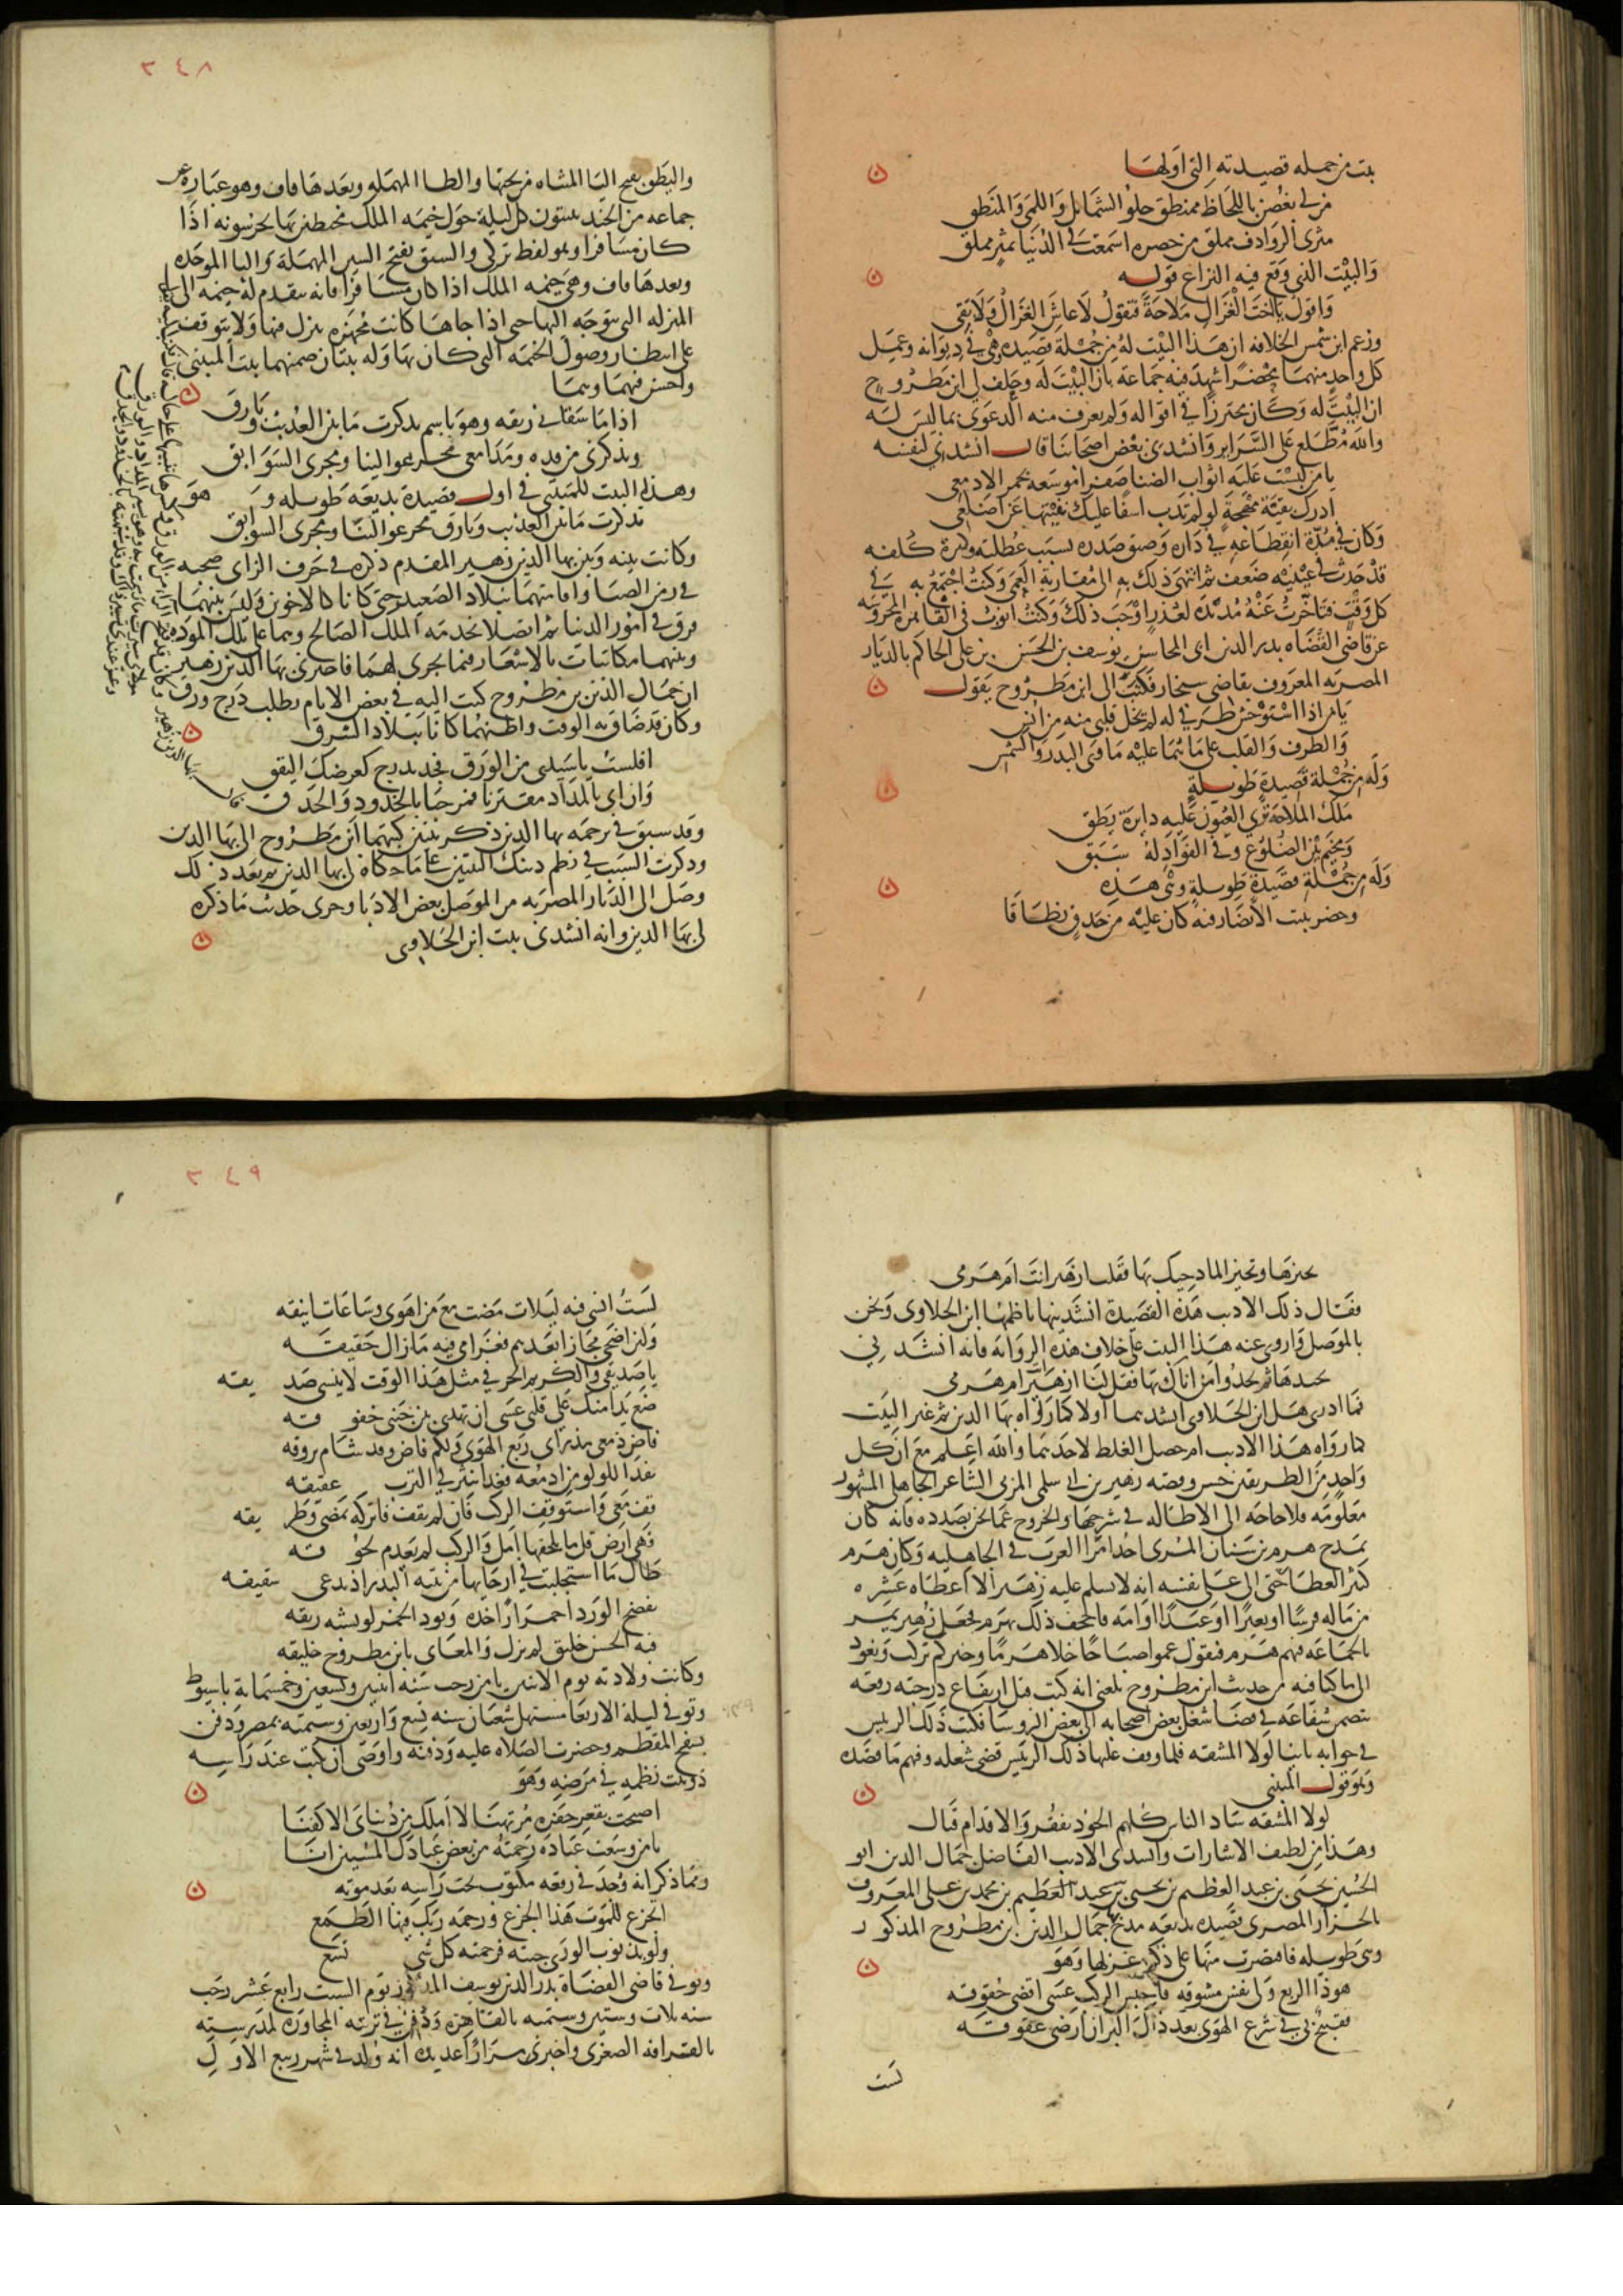 بيت من جمله قصيدته التي اولها
من لي بغصن باللحاظ ممنطق حلو الشمايل واللمى والمنطق
مثرى الروادف مملق من خصره اسمعت في الدنيا بمثر مملق
والبيت الذي وقع فيه النزاع قوله
واقول يا اخت الغزال ملاحة فتقول لا عاش الغزال ولا بقي
وزعم ابن شمس الخلافه ان هذا البيت له من جملة قصيده وهي في ديوانه وعمل
كل واحد منهما محضرا شهد فيه جماعة بان البيت له وحلف لي ابن مطروح
ان البيت له وكان محترزا في اقواله ولم يعرف منه الدعوى بما ليس له
والله مطلع على السراير وانشدني بعض اصحابنا قال انشدني لنفسه
يا من لبست عليه اثواب الضنا صفرا موشعه بحمر الادمع
ادرك بقية مهجة لو لم تذب اسفا عليك نفيتها عن اضلعي
وكان في مدة انقطاعه في داره وضيق صدره بسبب عطلته وكثرة كلفه
قد حدث في عينيه ضعف ثم انتهى ذلك به الى مقاربة العمى وكنت اجتمع به في
كل وقت فتاخرت عنه مديدة لعذر اوجب ذلك وكنت انوب في القاهرة المحروسه
عن قاضي القضاه بدر الدين ابي المحاسن يوسف بن الحسن بن علي الحاكم بالديار
المصريه المعروف بقاضي سنجار فكتب الى ابن مطروح يقول
يا من اذا استوحش طرفي له لم يخل قلبي منه من انس
والطرف والقلب على ما هما عليه ماوى البدر والشمس
وله من جملة قصيدة طويلة
ملك الملاحة ترى العيون عليه دايرة يطق
ومخيم بين الضلوع وفي الفؤاد له سبق
وله من جملة قصيدة طويلة وهي هذه
وخصر بيت الابصار فيه كان عليه من حدق نطاقا
٢٤٨
واليطق بفتح اليا المثناه من تحتها والطا المهملة وبعدها قاف وهو عبارة عن
جماعه من الجند يبيتون كل ليلة حول خيمه الملك محيطين بها يحرسونه اذا
كان مسافرا وهو لفظ تركي والسبق بفتح السين المهملة والبا الموحده
وبعدها قاف وهي خيمه الملك اذا كان مسافرا فانه يتقدم له خيمه الى
المنزله التي يتوجه اليها حتى اذا جاها كانت مجهزه ينزل فيها ولا يتوقف
على انتظار وصول الخيمه التي كان بها وله بيتان ضمنهما بيت المتنبي
واحسن فيهما وهما
اذا ما سقاني ريقه وهو باسم تذكرت ما بين العذيب وبارق
ويذكرني من قده ومدامعي مجر عوالينا ومجرى السوابق
وهذا البيت للمتنبي في اول قصيدة بديعة طويله وهو
تذكرت ما بين العذيب وبارق مجر عوالينا ومجرى السوابق
وكانت بينه وبين بها الدين زهير المقدم ذكره في حرف الزاى صحبه
في زمن الصبا واقامتهما ببلاد الصعيد حتى كانا كالاخوين وليس بينهما
فرق في امور الدنيا ثم اتصلا بخدمه الملك الصالح وهما على تلك الموده
وبينهما مكاتبات بالاشعار فيما يجري لهما فاخبرني بها الدين زهير
ان جمال الدين بن مطروح كتب اليه في بعض الايام يطلب درج ورق
وكان قد ضاق به الوقت واظنهما كانا ببلاد الشرق
افلست يا سيدي من الورق فجد بدرج كعرضك اليقق
وان اتى بالمداد مقترنا فمرحبا بالخدود والحدق
وقد سبق في ترجمه بها الدين ذكر بيتين كتبهما ابن مطروح الى بها الدين
وذكرت السبب في نظم ذينك البيتين على ما حكاه لي بها الدين ثم بعد ذلك
وصل الى الديار المصريه من الموصل بعض الادبا وجرى حديث ما ذكره
لي بها الدين وانه انشدني بيت ابن الحلاوي
تجيزها وتجيز المادحيك بها فقل لنا ازهير انت ام هرم
فقال ذلك الاديب هذه القصيدة انشدنيها ناظمها ابن الحلاوي ونحن
بالموصل واروي عنه هذا البيت على خلاف هذه الروايه فانه انشدني
تجيدها ثم تجدوا من اتاك بها فقل لنا ازهير ام هرم
فما ادري هل ابن الحلاوي انشدهما اولا كما رواه بها الدين ثم غير البيت
كما رواه هذا الاديب ام حصل الغلط لاحدهما والله اعلم مع ان كل
واحد من الطريقين حسن وقصه زهير بن ابي سلمى المزني الشاعر الجاهلي المشهور
معلومه فلا حاجه الى الاطاله في شرحها والخروج عما نحن بصدده فانه كان
يمدح هرم بن سنان المرى احد امرا العرب في الجاهليه وكان هرم
كثير العطا حتى الى على نفسه انه لا يسلم عليه زهير الا اعطاه عشره
من ماله فرسا او بعيرا او عبدا او امه فاجحف ذلك بهرم فجعل زهير يمر
بالجماعه فيهم هرم فيقول عموا صباحا خلا هرما وخيركم تركت ونعود
الى ما كنا فيه من حديث ابن مطروح بلغني انه كتب قبل ارتفاع درجته رقعه
تتضمن شفاعه في قضا شغل بعض اصحابه الى بعض الروسا فكتب ذلك الريس
في جوابه بابنا لولا المشقه فلما وقف عليها ذلك الريس قضى شغله وفهم ما قصده
وهو قول المتنبي
لولا المشقه ساد الناس كلهم الجود يفقر والاقدام قتال
وهذا من لطيف الاشارات وانشدني الاديب الفاضل جمال الدين ابو
الحسين يحيى بن عبد العظيم بن يحيى بن عبد العظيم بن محمد بن علي المعروف
بالجزار المصري قصيده بديعه مدح بها جمال الدين بن مطروح المذكور
وهي طويله فاقتصرت منها على ذكر غزلها وهو
هوذا الربع ولي نفس مشوقه فاحبس الركب عسى اقضي حقوقه
فقبيح بي في شرع الهوى بعد ذاك البر ان ارضى عقوقه
لست
٢٤٩
لست انسى فيه ليلات مضت مع من اهوى وساعات انيقه
ولئن اضحى مجازا بعدهم فغرامي فيه ما زال حقيقه
يا صديقي والكريم الحر في مثل هذا الوقت لا ينسى صديقه
ضع يدا منك على قلبي عسى ان تهدي بين جنبي خفوقه
فاض دمعي مذ راى ربع الهوى ولكم فاض وقد شام بروقه
نفد اللولو من ادمعه فغدا ينثر في الترب عقيقه
قف معي واستوقف الركب فان لم يقف فاتركه يمضي وطريقه
فهي ارض قل ما يلحقها امل والركب لم يعدم لحوقه
طال ما استجلبت في ارجايها من يتيه البدر اذ يدعى شقيقه
يفضح الورد احمرارا خده وتود الخمر لو تشبه ريقه
فبه الحسن خليق لم يزل والمعالي بابن مطروح خليقه
وكانت ولادته يوم الاثنين ثامن رجب سنه اثنين وتسعين وخمسمايه باسيوط
وتوفي ليلة الاربعا مستهل شعبان سنه تسع واربعين وستميه بمصر ودفن
بسفح المقطم وحضرت الصلاه عليه ودفنه واوصى ان يكتب عند راسه
دوبيت نظمه في مرضه وهو
اصبحت بقعر حفره مرتهنا لا املك من دنياى الا كفنا
يا من وسعت عباده رحمته من بعض عبادك المسيئين انا
ومما ذكر انه وجد في رقعه مكتوب تحت راسه بعد موته
اتجزع للموت هذا الجزع ورحمه ربك فيها الطمع
ولو بذنوب الورى جيته فرحمته كل شي تسع
وتوفي قاضي القضاة بدر الدين يوسف المذكور يوم السبت رابع عشر رجب
سنه ثلاث وستين وستميه بالقاهره ودفن في تربته المجاوره لمدرسته
بالقرافه الصغرى واخبرني مرارا عديده انه ولد في شهر ربيع الاول